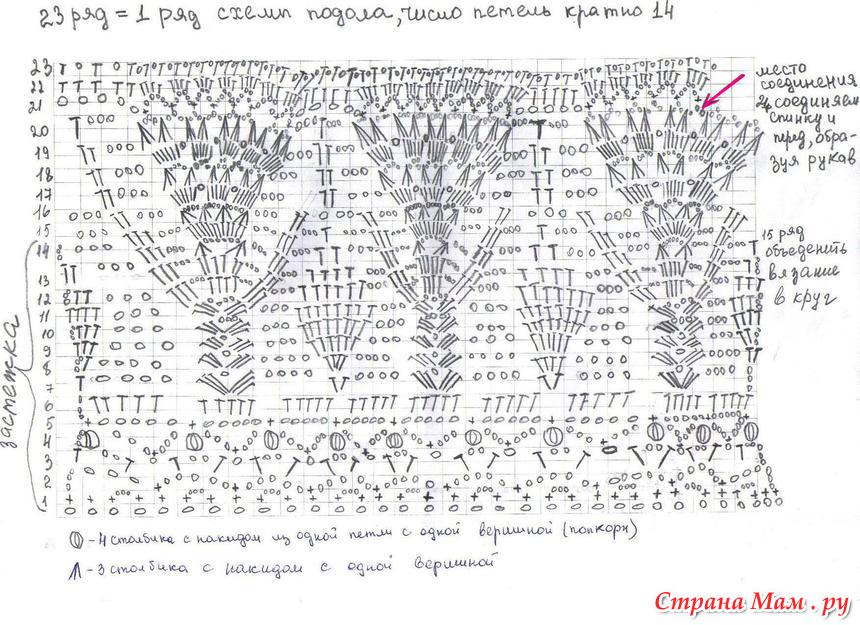 23 ряд = 1 ряд схемы подола, число петель кратно 14
23
22
21
20
19
18
17
16
15
14
13
12
11
10
9
8
7
6
5
4
3
2
1
застежка
место
соединения
соединяем
спинку и
перед, обра-
зуя рукав
15 ряд
объеденить
вязание
в круг
- 4 столбика с накидом из одной петли с одной вершиной (попкорн)
- 3 столбика с накидом с одной вершиной
Страна Мам.ру